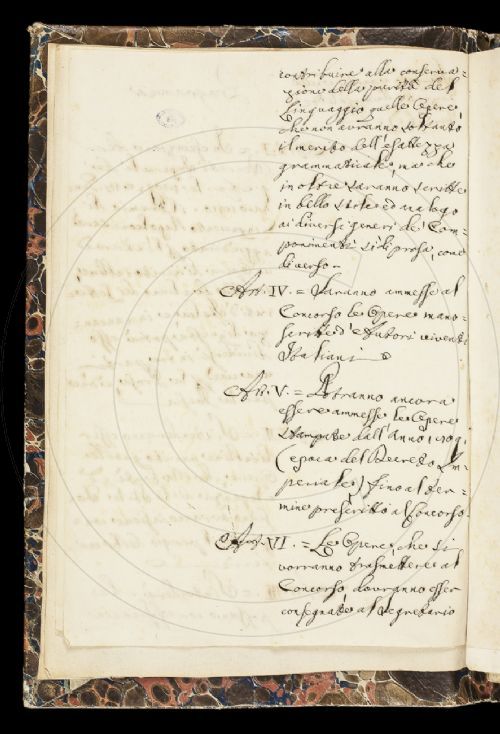 contribuire alla conserva=
zione della purità del
Linguaggio quelle Opere,
che non avranno soltanto
il merito dell'esattezza
grammaticale, ma che
inoltre saranno scritte
in bello stile ed analogo
ai diversi generi de' Com=
ponimenti sì di prosa, come
di verso.
Art. IV. = Saranno ammesse al
Concorso le Opere mano=
scritte d'Autori viventi
Italiani
Art. V. = Potranno ancora
essere ammesse le Opere
stampate dall'Anno 1809,
(epoca del Decreto Im=
periale) fino al ter=
mine prescritto al Concorso
Art. VI. = Le Opere, che si
vorranno trasmettere al
Concorso dovranno esser
consegnate al Segretario